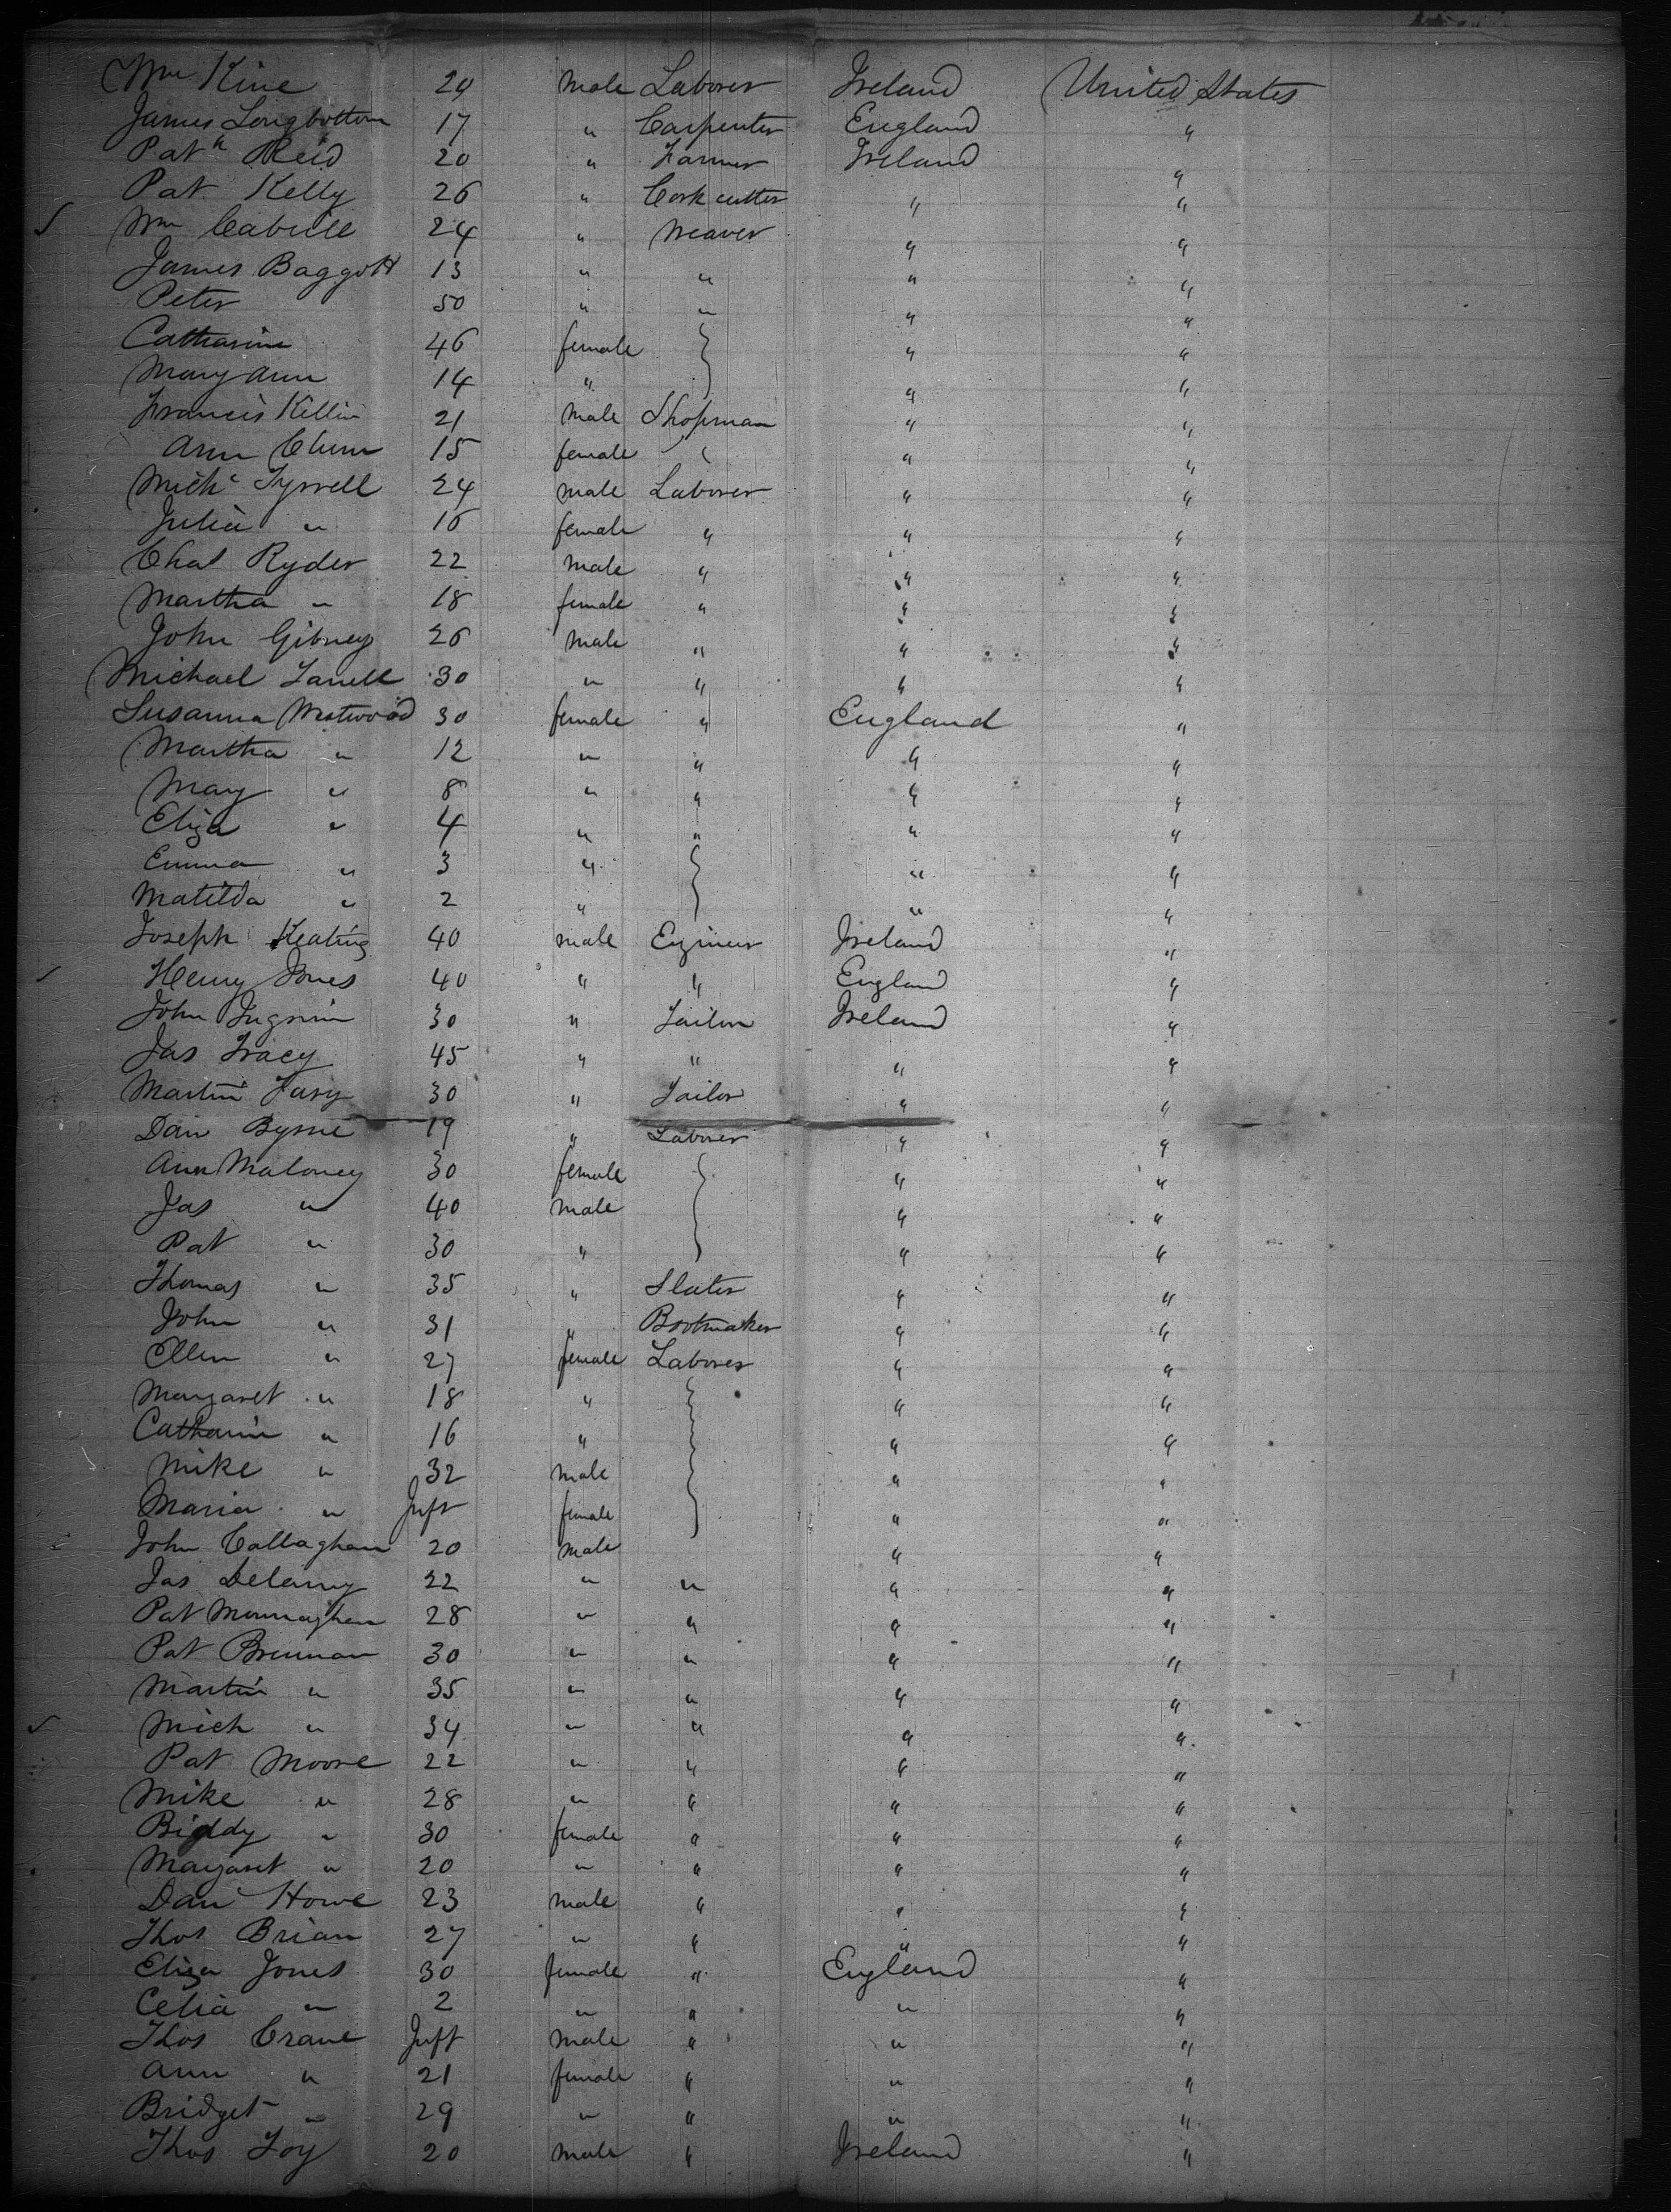 Wm Kine 24 Male Laborer Ireland United States
James Longbottom 17 " Carpenter England "
Patk Reid 20 " Farmer Ireland "
Pat Kelly 26 " Cork cutter " "
Wm Cahill 24 " Weaver " "
James Baggott 13 " " " "
Peter 50 " " " "
Catharine 46 female " "
Mary Ann 14 " " "
Francis Killin 21 Male Shopman " "
Ann Clunn 15 female " "
Mich Tyrrell 24 Male Laborer " "
Julia " 16 female " " "
Chas Ryder 22 Male " " "
Martha " 18 female " " "
John Gibney 26 Male " " "
Michael Farrell 30 " " " "
Susanna Westwood 30 female " England "
Martha " 12 " " " "
Mary " 8 " " " "
Eliza " 4 " " " "
Emma " 3 " " "
Matilda " 2 " " "
Joseph Keating 40 male Enginer Ireland "
Henry Jones 40 " " England "
John Ingrim 30 " Tailor Ireland "
Jas Tracy 45 " " " "
Martin 30 " Tailor " "
Dan Byrne 19 " Laborer " "
Ann Maloney 30 female " "
Jas " 40 Male " "
Pat " 30 " " "
Thomas " 35 " Slater " "
John " 31 " Bootmaker " "
Ellen " 27 female Laborer " "
Margaret " 18 " " "
Catharin " 16 " " "
Mike " 32 Male " "
Maria " Inft female " "
John Callaghan 20 Male " "
Jas Delaney 22 " " " "
Pat Monnaghan 28 " " " "
Pat Brennan 30 " " " "
Martin " 35 " " " "
Mich " 34 " " " "
Pat Moore 22 " " " "
Mike " 28 " " " "
Biddy " 30 female " " "
Margaret " 20 " " " "
Dan Howe 23 Male " " "
Thos Brian 27 " " " "
Eliza Jones 30 female " England "
Celia " 2 " " " "
Thos Crane Inft Male " " "
Ann " 21 female " " "
Bridget " 29 " " " "
Thos Foy 20 Male " Ireland "